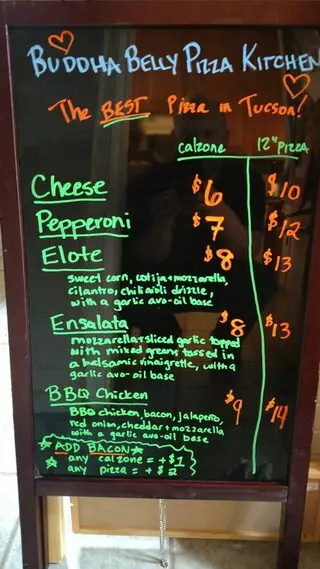 BUDDHA BELLY PIZZA KITCHEN
The BEST Pizza in Tucson!
calzone 12" Pizza
Cheese $6 $10
Pepperoni $7 $12
Elote $8 $13
sweet corn, cotija+mozzarella,
cilantro, chili aioli drizzle,
with a garlic avo-oil base
Ensalata $8 $13
mozzarella+sliced garlic topped
with mixed greens tossed in
a balsamic vinaigrette, with a
garlic avo-oil base
BBQ Chicken $9 $14
BBQ chicken, bacon, jalapeño,
red onion, cheddar+mozzarella
with a garlic avo-oil base
ADD BACON
any calzone = +$1
any pizza = +$2